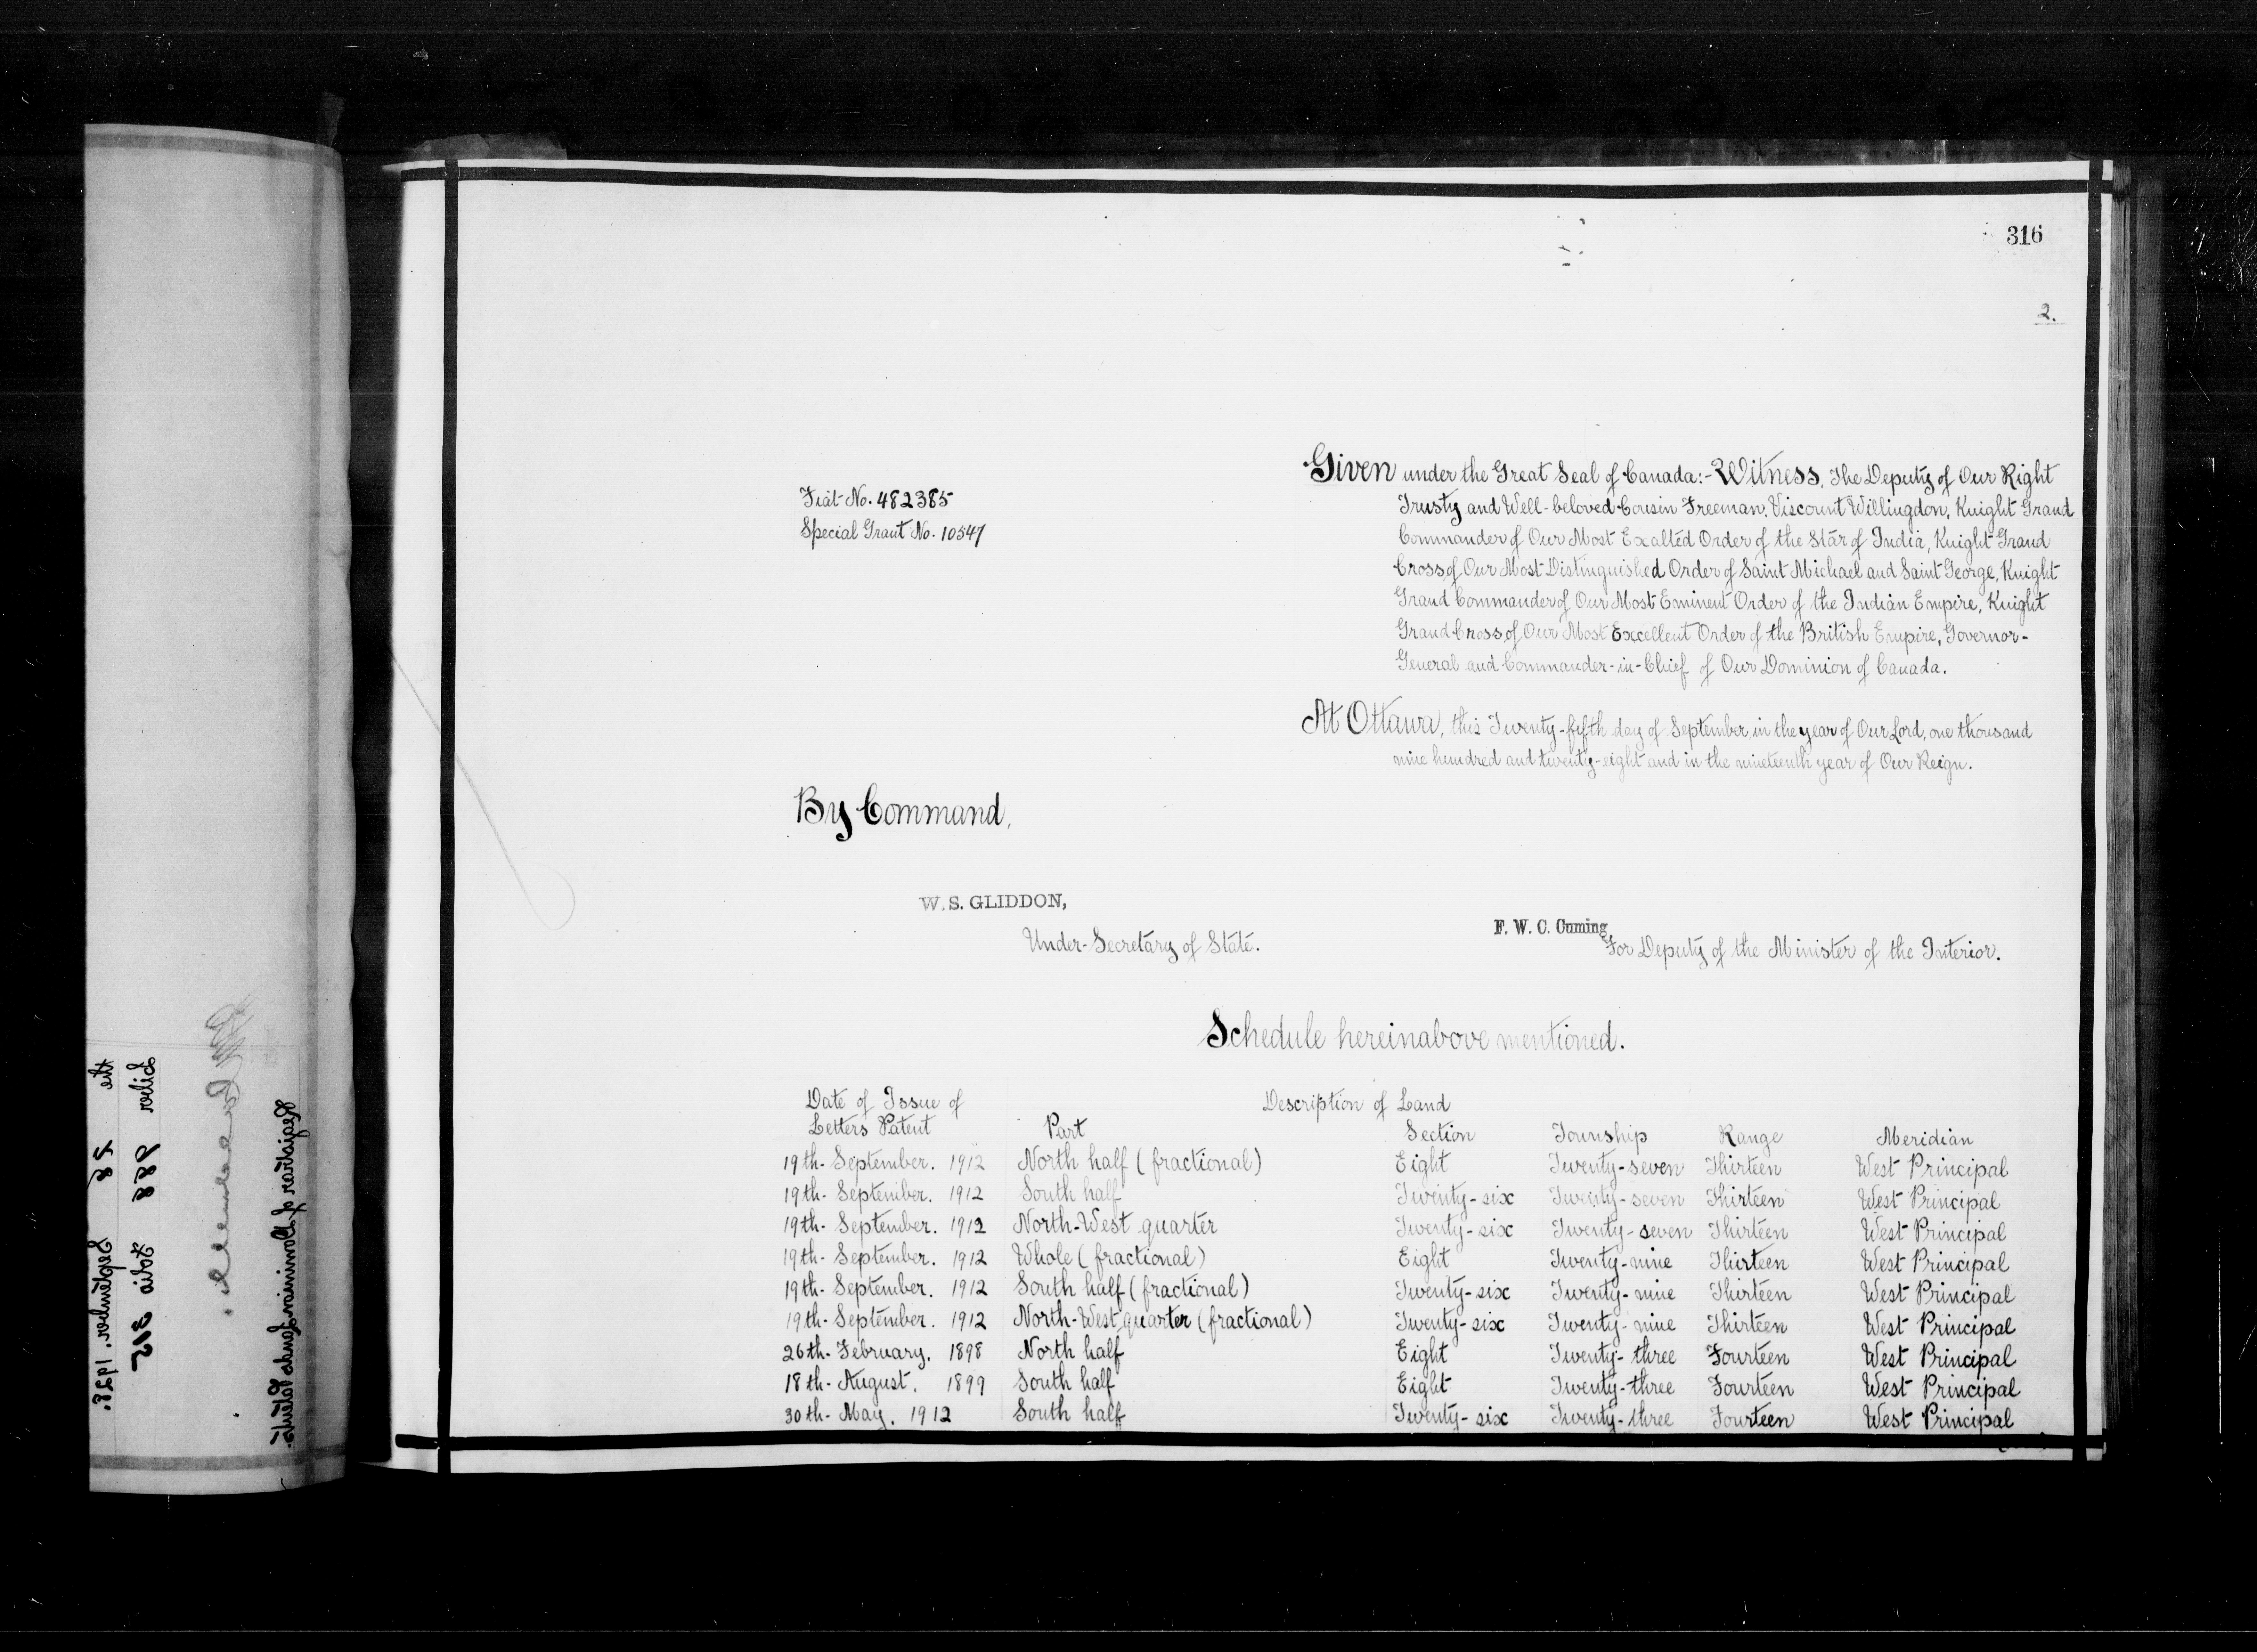 316
2.
Fiat No. 482385
Special Grant No. 10547
Given under the Great Seal of Canada:- Witness, The Deputy of Our Right
Trusty and Well-beloved Cousin Freeman, Viscount Willingdon, Knight Grand
Commander of Our Most Exalted Order of the Star of India, Knight Grand
Cross of Our Most Distinguished Order of Saint Michael and Saint George, Knight
Grand Commander of Our Most Eminent Order of the Indian Empire, Knight
Grand Cross of Our Most Excellent Order of the British Empire, Governor-
General and Commander-in-Chief of Our Dominion of Canada.
At Ottawa, this Twenty-fifth day of September, in the year of Our Lord, one thousand
nine hundred and twenty-eight and in the nineteenth year of Our Reign.
By Command,
W. S. GLIDDON,
Under-Secretary of State.
F. W. C. Cuming,
For Deputy of the Minister of the Interior.
Schedule hereinabove mentioned.
Date of Issue of Description of Land
Letters Patent Part Section Township Range Meridian
19th- September. 1912 North half (fractional) Eight Twenty-seven Thirteen West Principal
19th- September. 1912 South half Twenty-six Twenty-seven Thirteen West Principal
19th- September. 1912 North-West quarter Twenty-six Twenty-seven Thirteen West Principal
19th- September. 1912 Whole (fractional) Eight Twenty-nine Thirteen West Principal
19th- September. 1912 South half (fractional) Twenty-six Twenty-nine Thirteen West Principal
19th- September. 1912 North-West quarter (fractional) Twenty-six Twenty-nine Thirteen West Principal
26th- February. 1898 North half Eight Twenty-three Fourteen West Principal
18th- August. 1899 South half Eight Twenty-three Fourteen West Principal
30th- May. 1912 South half Twenty-six Twenty-three Fourteen West Principal
the 28 September. 1928.
Liber 288 Folio 315
Registrar of Dominion Lands Patents.